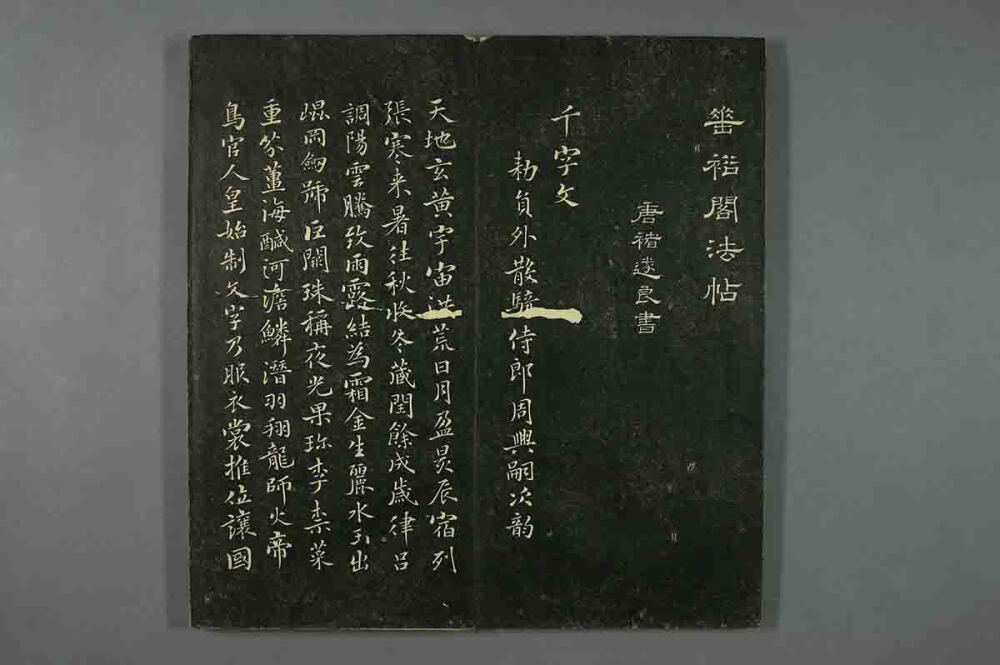 崋裕閣法帖
唐褚遂良書
千字文
勑負外散騎侍郎周興嗣次韵
天地玄黄宇宙洪荒日月盈昃辰宿列
張寒来暑往秋收冬藏閏餘成歳律吕
調陽雲騰致雨露結為霜金生麗水玉出
崐岡劔號巨闕珠稱夜光果珎李柰菜
重芥薑海醎河澹鱗潛羽翔龍師火帝
鳥官人皇始制文字乃服衣裳推位讓國